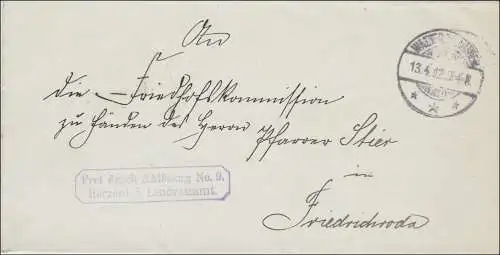 An
die Friedhofskommission
zu Händen des Herrn Pfarrer Stier
in
Friedrichroda
13.4.02
Frei durch Ablösung No. 9.
Herzogl. S. Landratsamt.